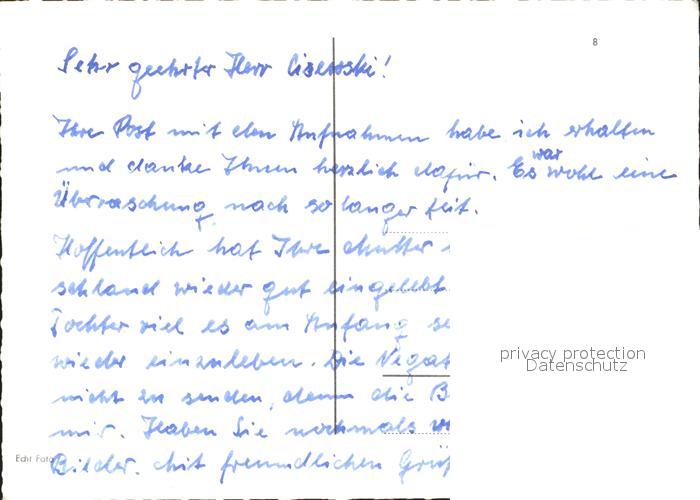 8
Sehr geehrter Herr Ciserski!
Ihre Post mit den Aufnahmen habe ich erhalten
und danke Ihnen herzlich dafür. Es war wohl eine
Überraschung nach so langer Zeit.
Hoffentlich hat Ihre Mutter
schland wieder gut eingelebt.
Tochter viel es am Anfang se
wieder einzuleben. Die Negat
nicht zu senden, denn die B
mir. Haben Sie nochmals
Bilder. Mit freundlichen Grüß
privacy protection
Datenschutz
Echt Foto